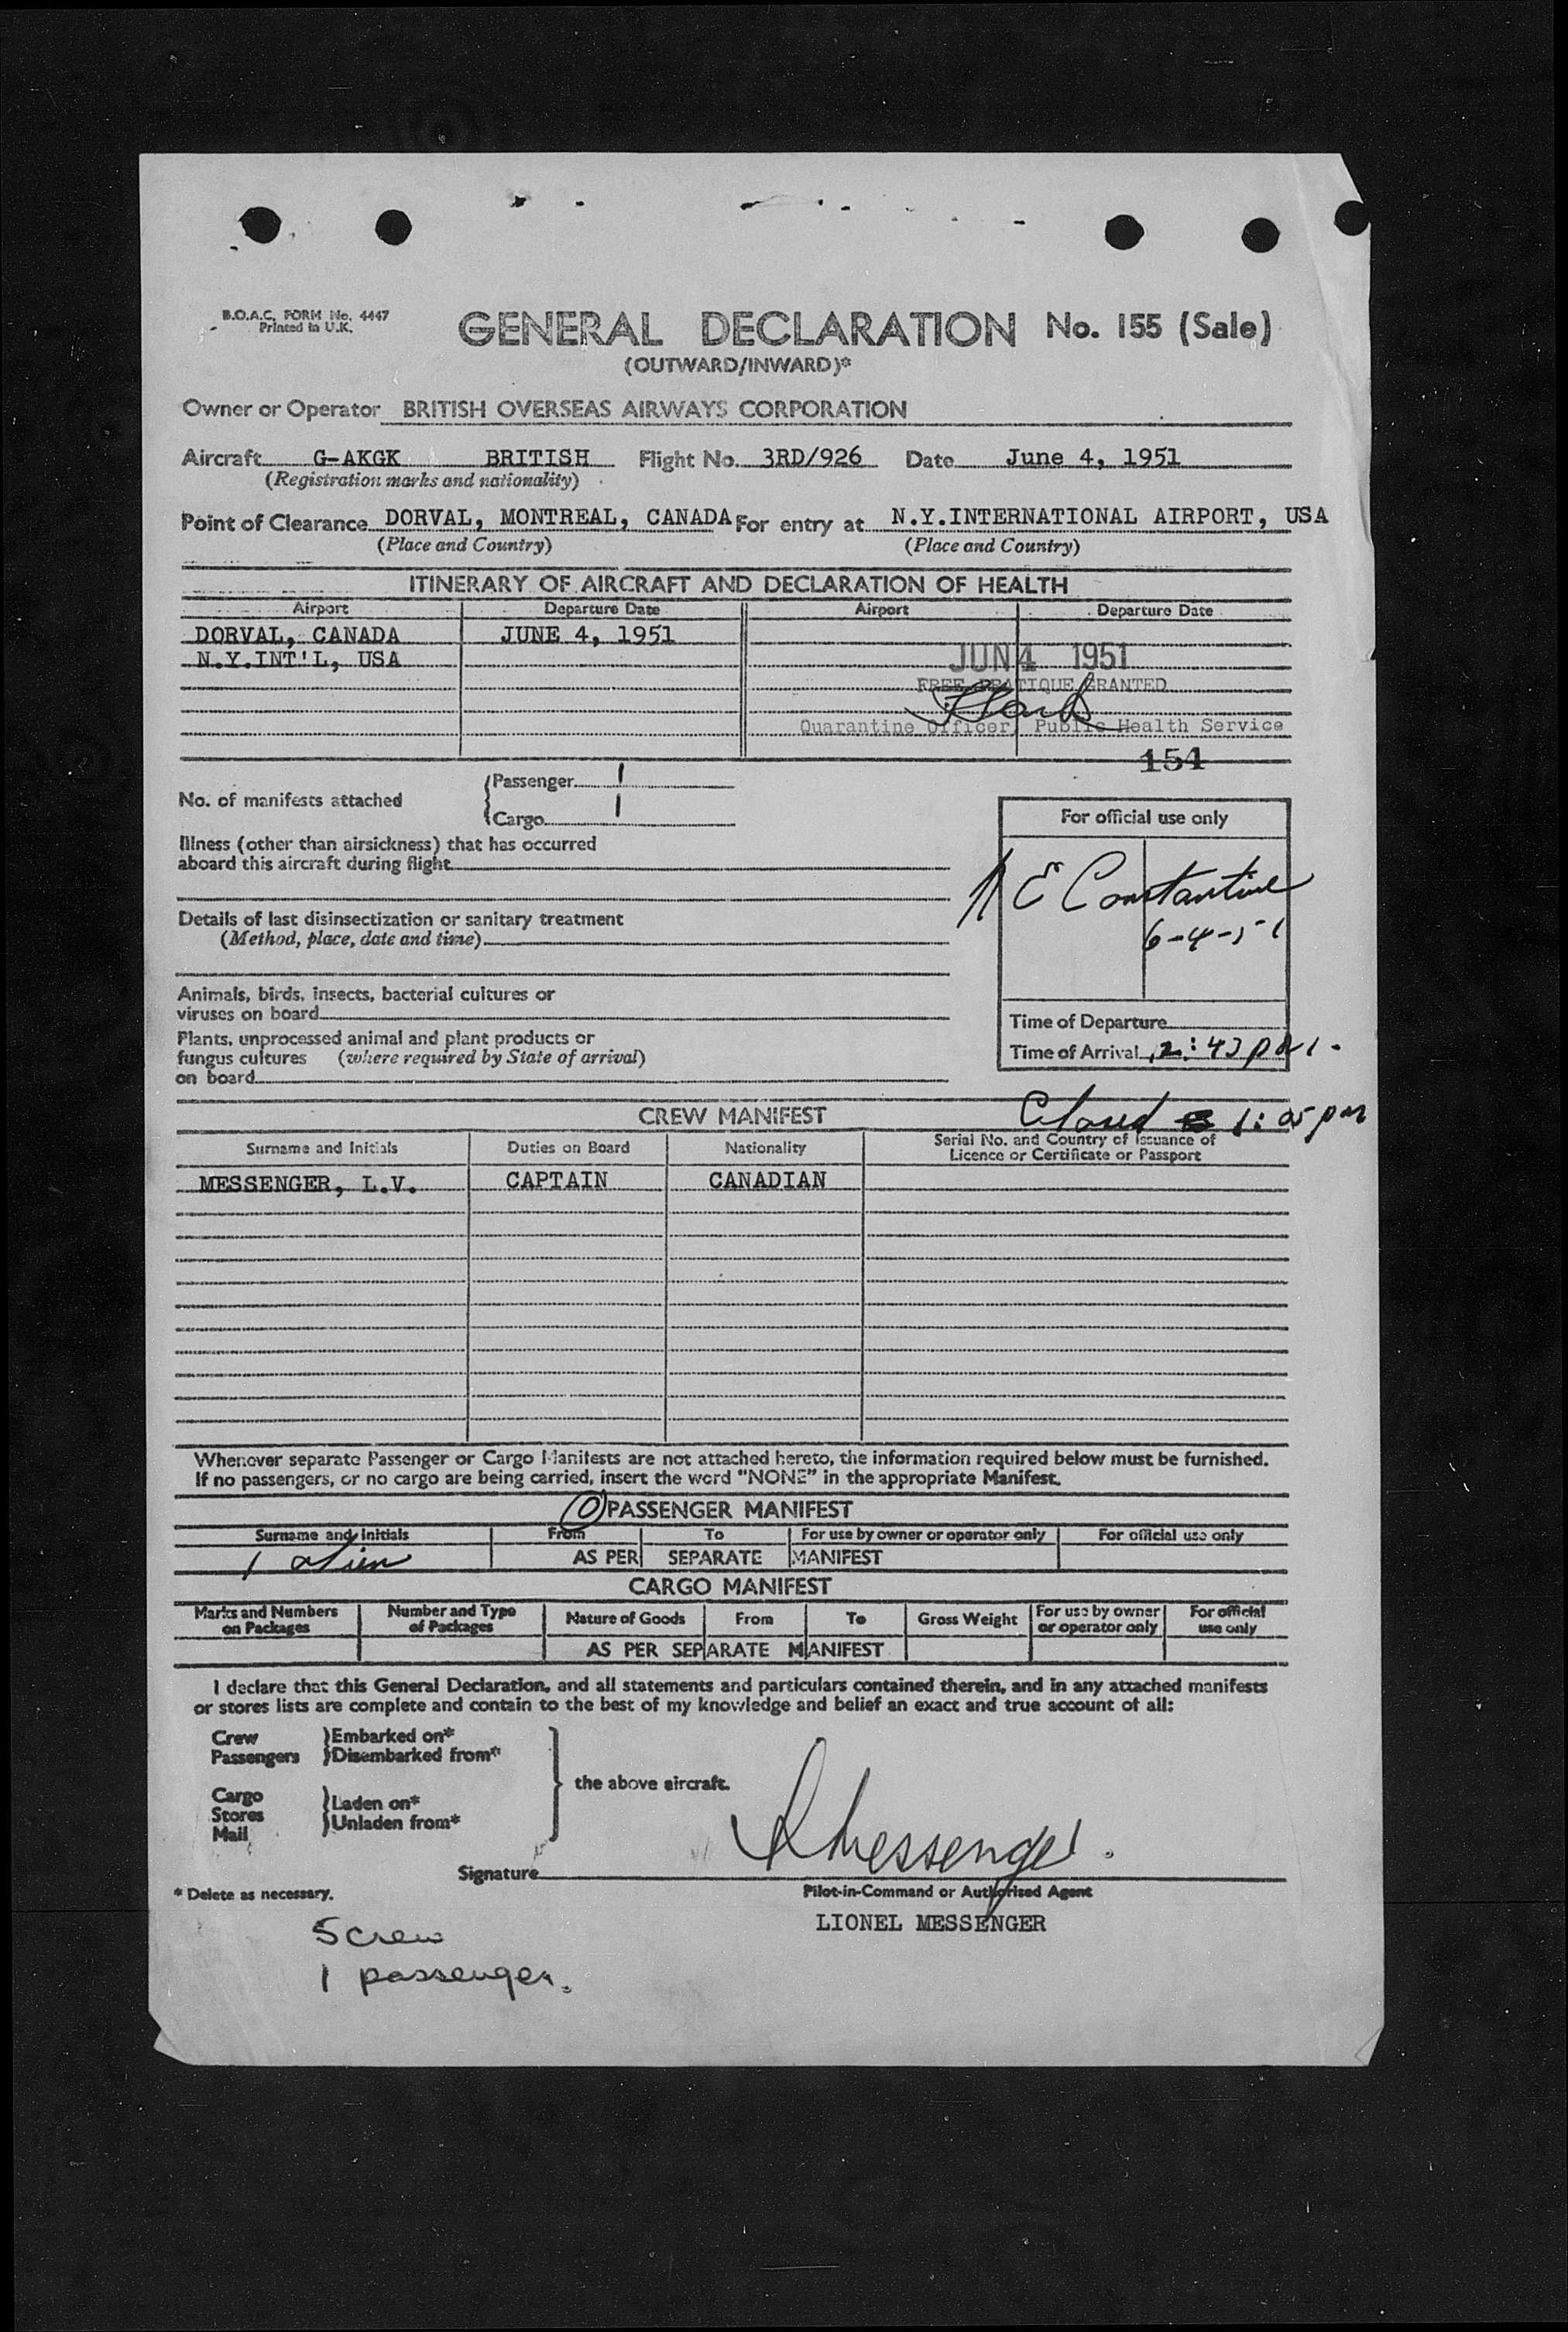 B.O.A.C. FORM No. 4447
Printed in U.K.
GENERAL DECLARATION No. 155 (Sale)
(OUTWARD/INWARD)*
Owner or Operator BRITISH OVERSEAS AIRWAYS CORPORATION
Aircraft G-AKGK BRITISH Flight No. 3RD/926 Date June 4, 1951
(Registration marks and nationality)
Point of Clearance DORVAL, MONTREAL, CANADA For entry at N.Y.INTERNATIONAL AIRPORT, USA
(Place and Country) (Place and Country)
ITINERARY OF AIRCRAFT AND DECLARATION OF HEALTH
Airport Departure Date Airport Departure Date
DORVAL, CANADA JUNE 4, 1951
N.Y.INT'L, USA JUN 4 1951
FREE PRATIQUE GRANTED
Quarantine Officer, Public Health Service
154
No. of manifests attached
Passenger 1
Cargo 1
For official use only
Illness (other than airsickness) that has occurred
aboard this aircraft during flight
E Constantine
6-4-51
Details of last disinsectization or sanitary treatment
(Method, place, date and time)
Animals, birds, insects, bacterial cultures or
viruses on board
Plants, unprocessed animal and plant products or
fungus cultures (where required by State of arrival)
on board
Time of Departure
Time of Arrival
Closed 1:05 pm
CREW MANIFEST
Surname and Initials Duties on Board Nationality Serial No. and Country of Issuance of
Licence or Certificate or Passport
MESSENGER, L.V. CAPTAIN CANADIAN
Whenever separate Passenger or Cargo Manifests are not attached hereto, the information required below must be furnished.
If no passengers, or no cargo are being carried, insert the word "NONE" in the appropriate Manifest.
0 PASSENGER MANIFEST
Surname and Initials From To For use by owner or operator only For official use only
1 alien AS PER SEPARATE MANIFEST
CARGO MANIFEST
Marks and Numbers on Packages Number and Type of Packages Nature of Goods From To Gross Weight For use by owner or operator only For official use only
AS PER SEPARATE MANIFEST
I declare that this General Declaration, and all statements and particulars contained therein, and in any attached manifests
or stores lists are complete and contain to the best of my knowledge and belief an exact and true account of all:
Crew Embarked on*
Passengers Disembarked from*
the above aircraft.
Cargo Laden on*
Stores Unladen from*
Mail
L Messenger.
Signature
* Delete as necessary.
Pilot-in-Command or Authorised Agent
LIONEL MESSENGER
5 crew
1 passenger.